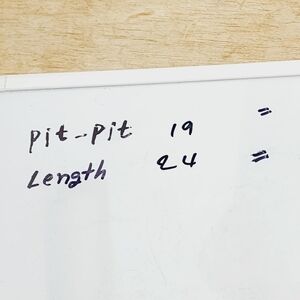 Pit-Pit 19 =
Length 24 =